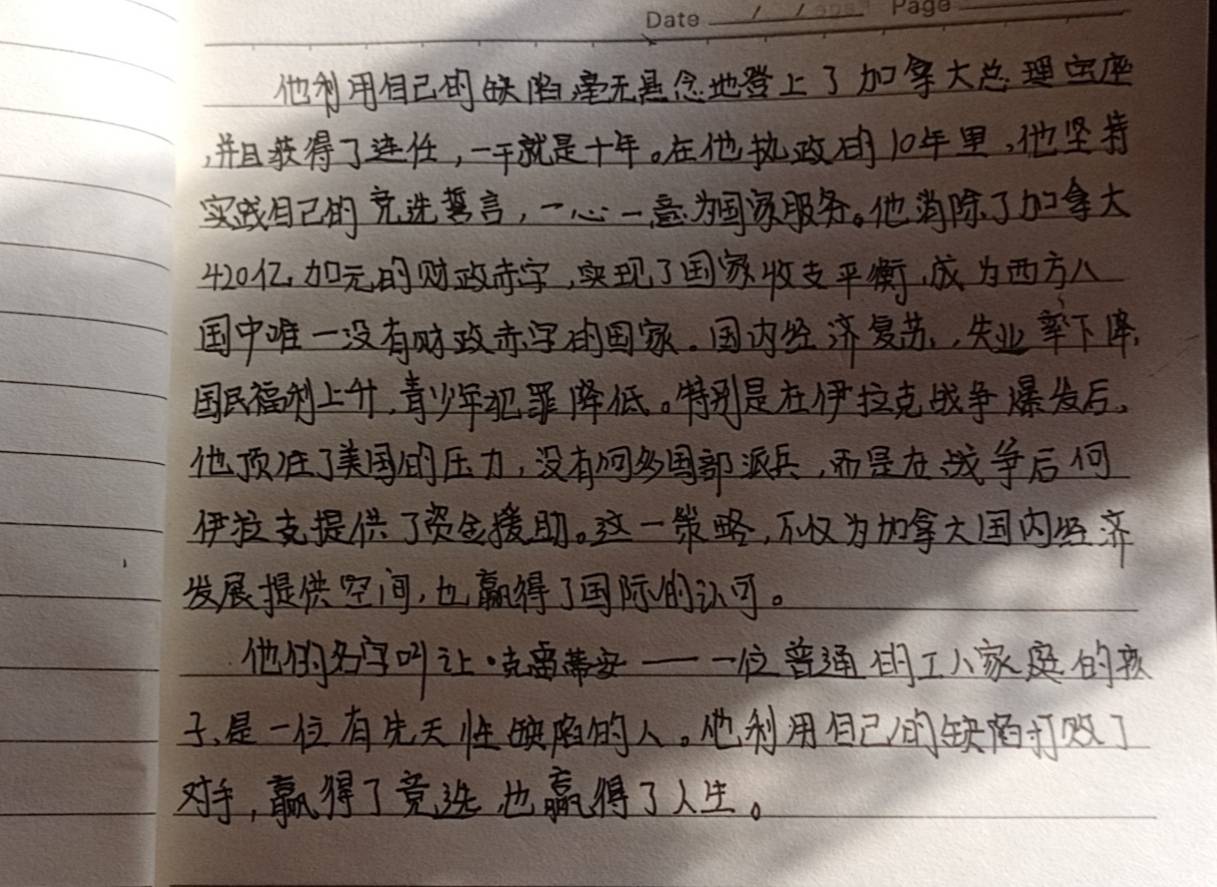 Date / / Page
他利用自己的缺陷,毫无悬念地登上了加拿大总理宝座
,并且获得了连任,一干就是十年。在他执政的10年里,他坚持
实践自己的竞选誓言,一心一意为国家服务。他消除了加拿大
420亿加元的财政赤字,实现了国家收支平衡,成为西方八
国中唯一没有财政赤字的国家。国内经济复苏,失业率下降,
国民福利上升,青少年犯罪降低。特别是在伊拉克战争爆发后,
他顶住了美国的压力,没有向多国部派兵,而是在战争后向
伊拉克提供了资金援助。这一策略,不仅为加拿大国内经济
发展提供空间,也赢得了国际的认可。
他的名字叫让·克雷蒂安——一位普通的工人家庭的孩
子,是一位有先天性缺陷的人。他利用自己的缺陷打败了
对手,赢得了竞选,也赢得了人生。